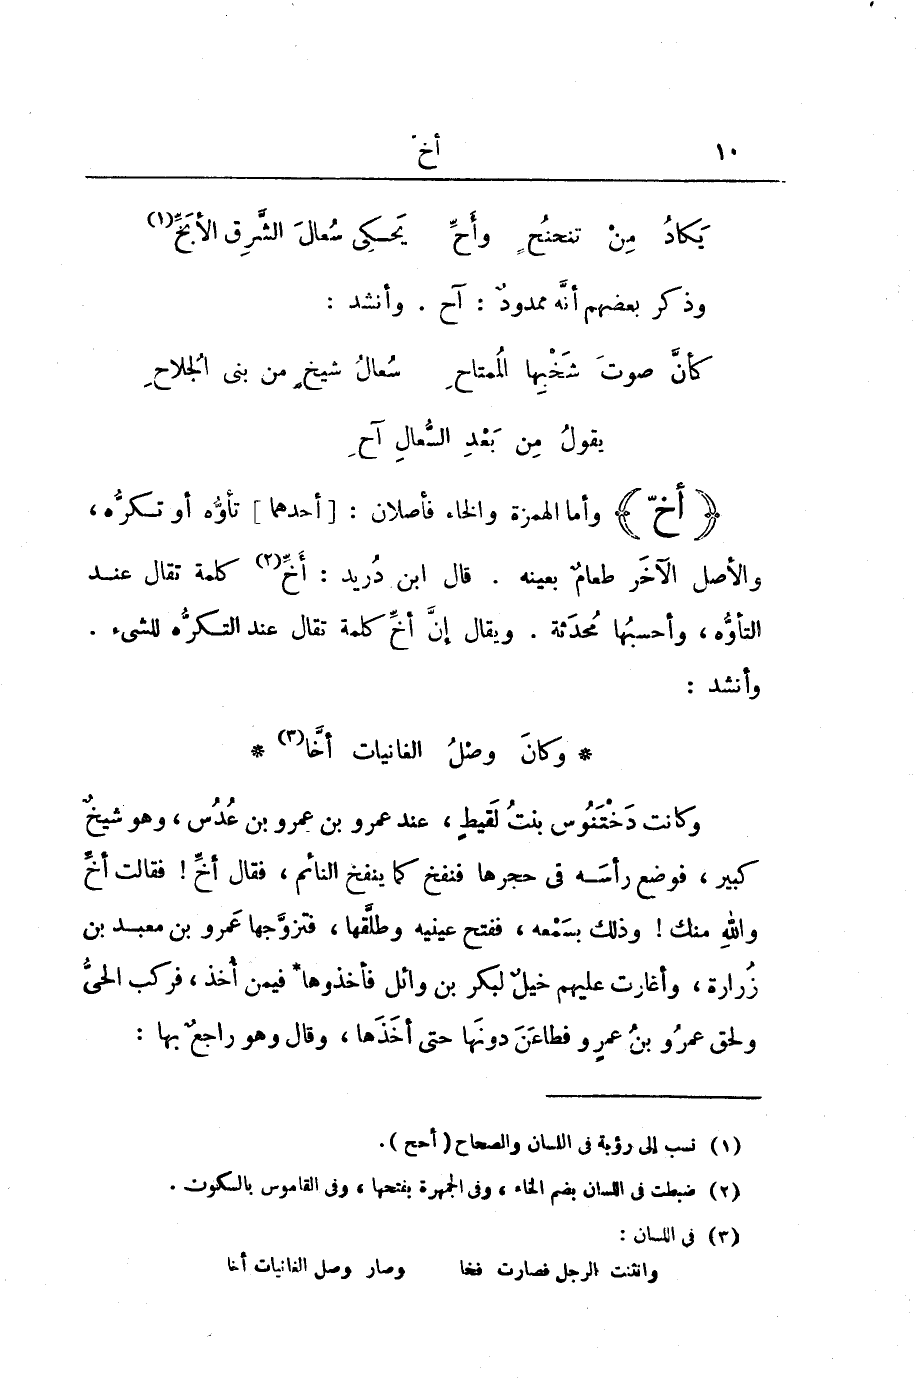 ١٠
أخ
يَكادُ مِنْ تنحنُحٍ وأَحِّ يَحـكِى سُعالَ الشَّرِقِ الأبَحِّ(١)
وذكر بعضهم أنَّه ممدودٌ : آح . وأنشد :
كأنَّ صوتَ شَخْبِها الُمتاحِ سُعالُ شيخٍ من بنى الُجلاحِ
يقولُ مِن بَعْدِ السُّعالِ آحِ
﴿ أخّ ﴾ وأما الهمزة والخاء فأصلان : [ أحدهما ] تأوُّه أو تـكرُّه ،
والأصل الآخَر طعامٌ بعينه . قال ابن دُريد : أَخِّ(٢) كلمة تقال عنـد
التأوُّه ، وأحسبُها مُحدَثة . ويقال إنَّ أخِّ كلمة تقال عند التـكرُّه للشىء .
وأنشد :
* وكانَ وصْلُ الغانيات أخَّا(٣) *
وكانت دَخْتَنُوس بنتُ لَقيطٍ ، عند عمرو بن عمرو بن عُدُس ، وهو شيخٌ
كبير ، فوضع رأسَـه فى حجرها فنفخ كما ينفخ النائم ، فقال أخِّ ! فقالت أخِّ
واللهِ منك ! وذلك بسَمْعه ، ففتح عينيه وطلَّقها ، فتزوَّجها عَمرو بن معبـد بن
زُرارة ، وأغارت عليهم خيلٌ لبكر بن وائل فأخذوها* فيمن أُخذ ، فركب الحىُّ
ولحق عمرُو بنُ عمرٍو فطاعَنَ دونَها حتى أخَذَها ، وقال وهو راجعٌ بها :
(١) نسب إلى رؤبة فى اللسان والصحاح ( أحح ) .
(٢) ضبطت فى اللسان بضم الخاء ، وفى الجمهرة بفتحها ، وفى القاموس بالسكون .
(٣) فى اللسان :
وانثنت الرجل فصارت فخا وصار وصل الغانيات أخا